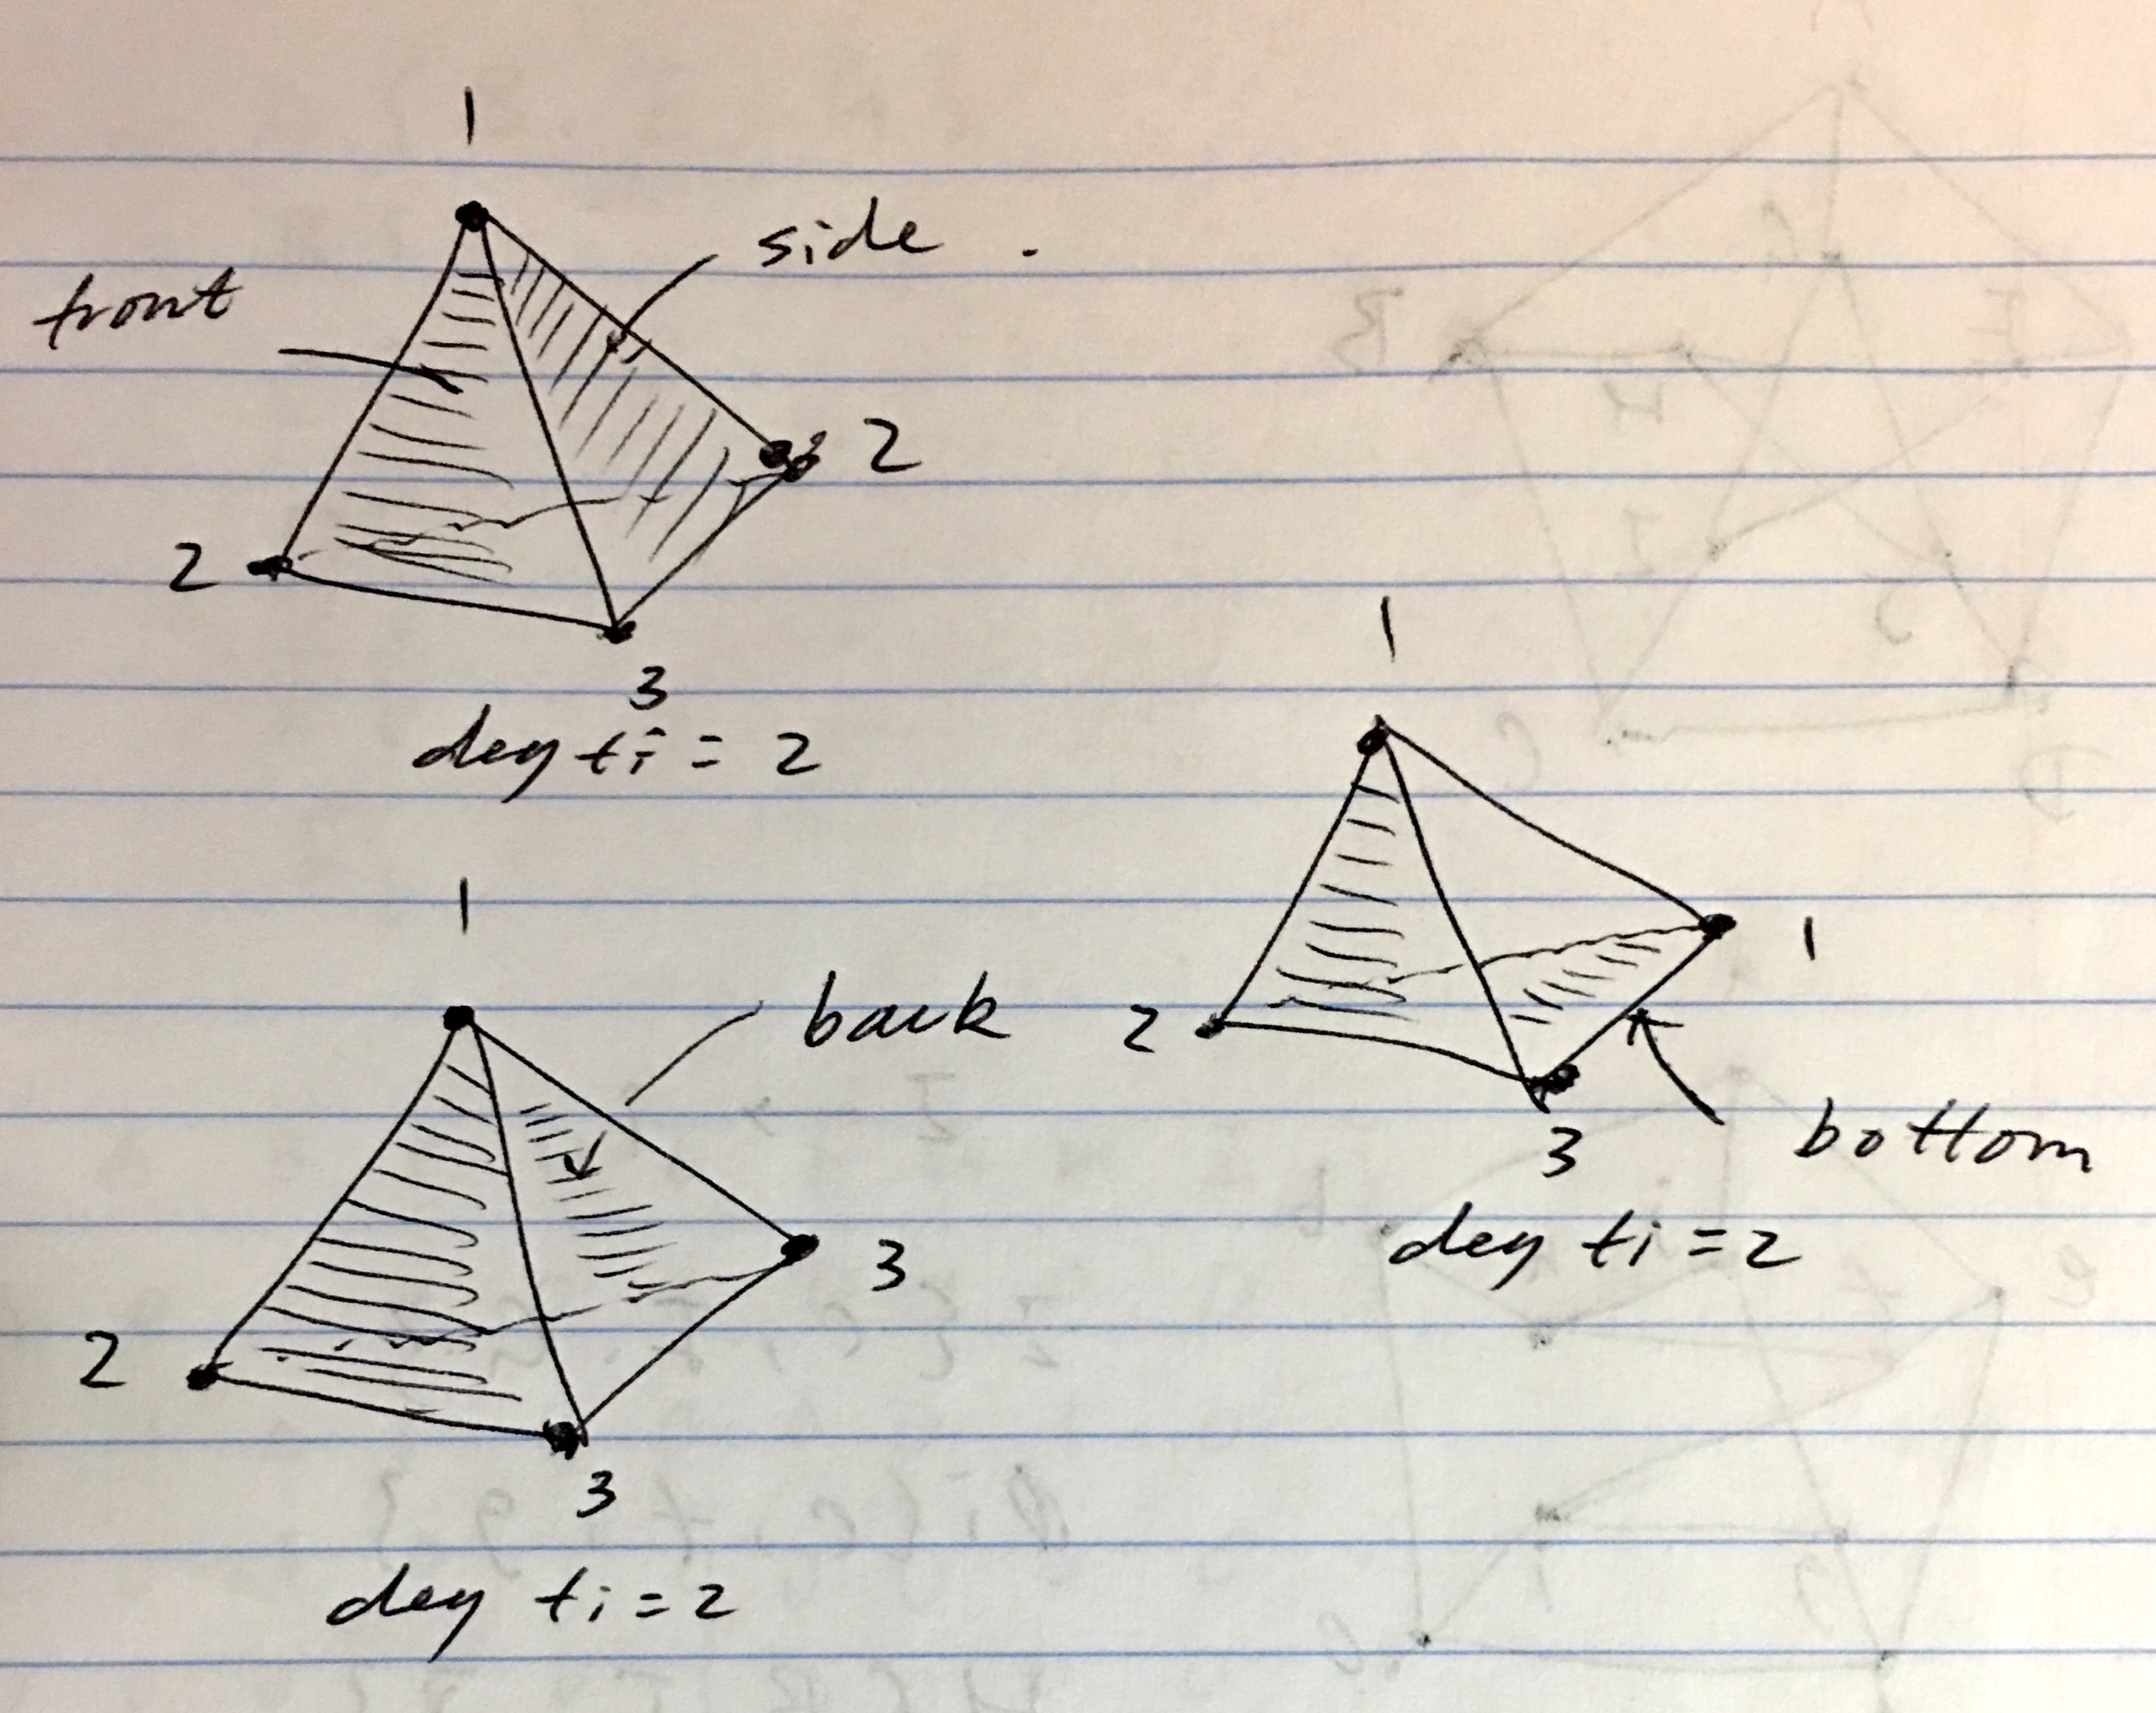 1
side .
front
2
2
3
deg ti = 2
1
1
2
3
bottom
deg ti = 2
1
back
3
2
3
deg ti = 2